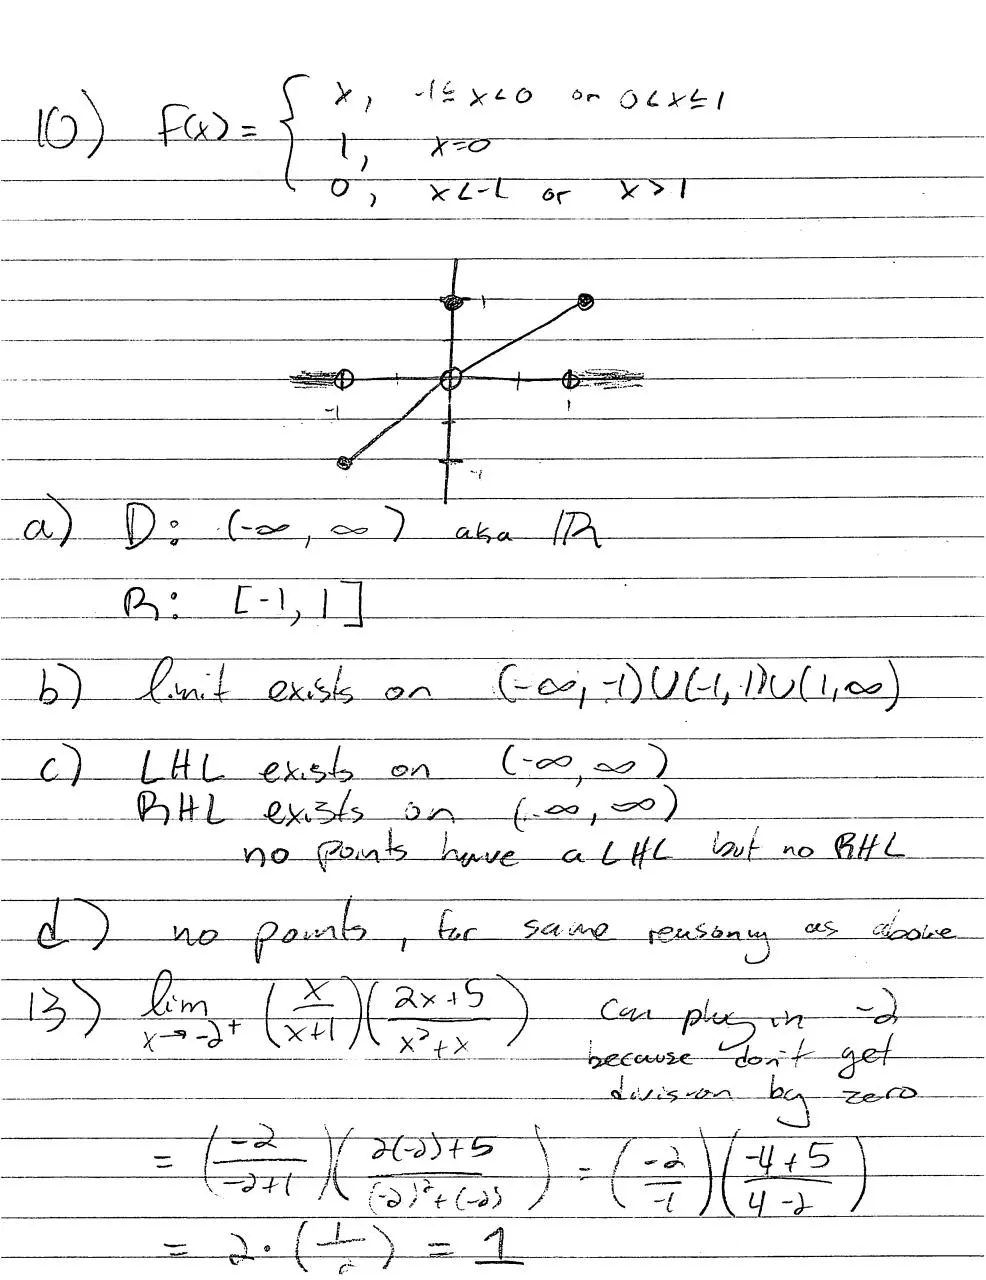 10) f(x) = { x, -1≤x<0 or 0<x≤1
1, x=0
0, x<-1 or x>1
1
-1
1
-1
a) D: (-∞, ∞) aka ℝ
R: [-1, 1]
b) limit exists on (-∞, -1)∪(-1, 1)∪(1, ∞)
c) LHL exists on (-∞, ∞)
RHL exists on (-∞, ∞)
no points have a LHL but no RHL
d) no points, for same reasoning as above
13) lim x→-2⁺ (x/(x+1))((2x+5)/(x²+x)) Can plug in -2
because don't get
division by zero
= (-2/(-2+1))((2(-2)+5)/((-2)²+(-2))) = (-2/-1)((-4+5)/(4-2))
= 2·(1/2) = 1